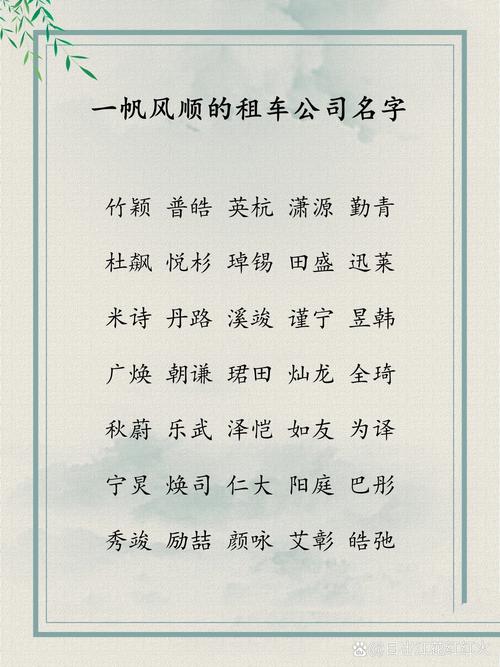 一帆风顺的租车公司名字
竹颖 普皓 英杭 潇源 勤青
杜飙 悦杉 琸锡 田盛 迅莱
米诗 丹路 溪竣 谨宁 昱韩
广焕 朝谦 珺田 灿龙 全琦
秋蔚 乐武 泽恺 如友 为译
宁炅 焕司 仁大 阳庭 巴彤
秀竣 励喆 颜咏 艾彰 皓弛